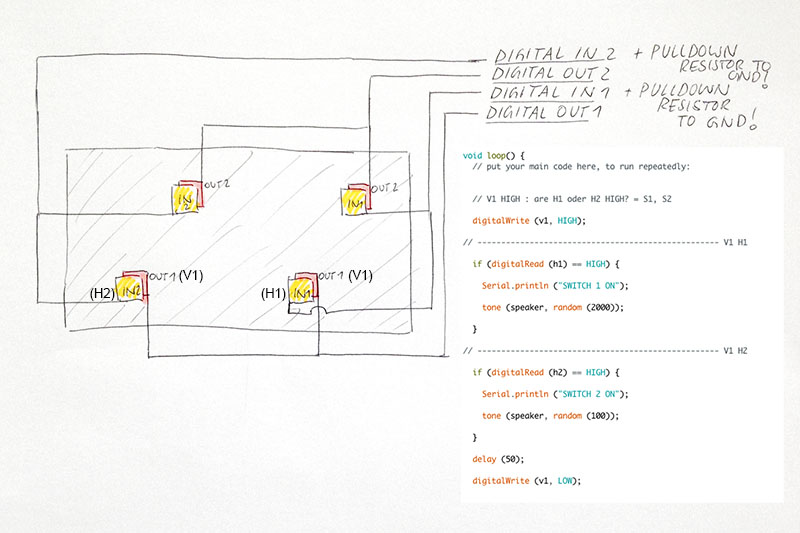 DIGITAL IN 2 + PULLDOWN
RESISTOR TO
GND!
DIGITAL OUT 2
DIGITAL IN 1 + PULLDOWN
RESISTOR
TO GND!
DIGITAL OUT 1
OUT 2
IN
2
OUT 2
IN1
OUT 1 (V1)
(H2) IN2
OUT 1 (V1)
(H1) IN1
void loop() {
// put your main code here, to run repeatedly:
// V1 HIGH : are H1 oder H2 HIGH? = S1, S2
digitalWrite (v1, HIGH);
// --------------------------------------------------- V1 H1
if (digitalRead (h1) == HIGH) {
Serial.println ("SWITCH 1 ON");
tone (speaker, random (2000));
}
// --------------------------------------------------- V1 H2
if (digitalRead (h2) == HIGH) {
Serial.println ("SWITCH 2 ON");
tone (speaker, random (100));
}
delay (50);
digitalWrite (v1, LOW);